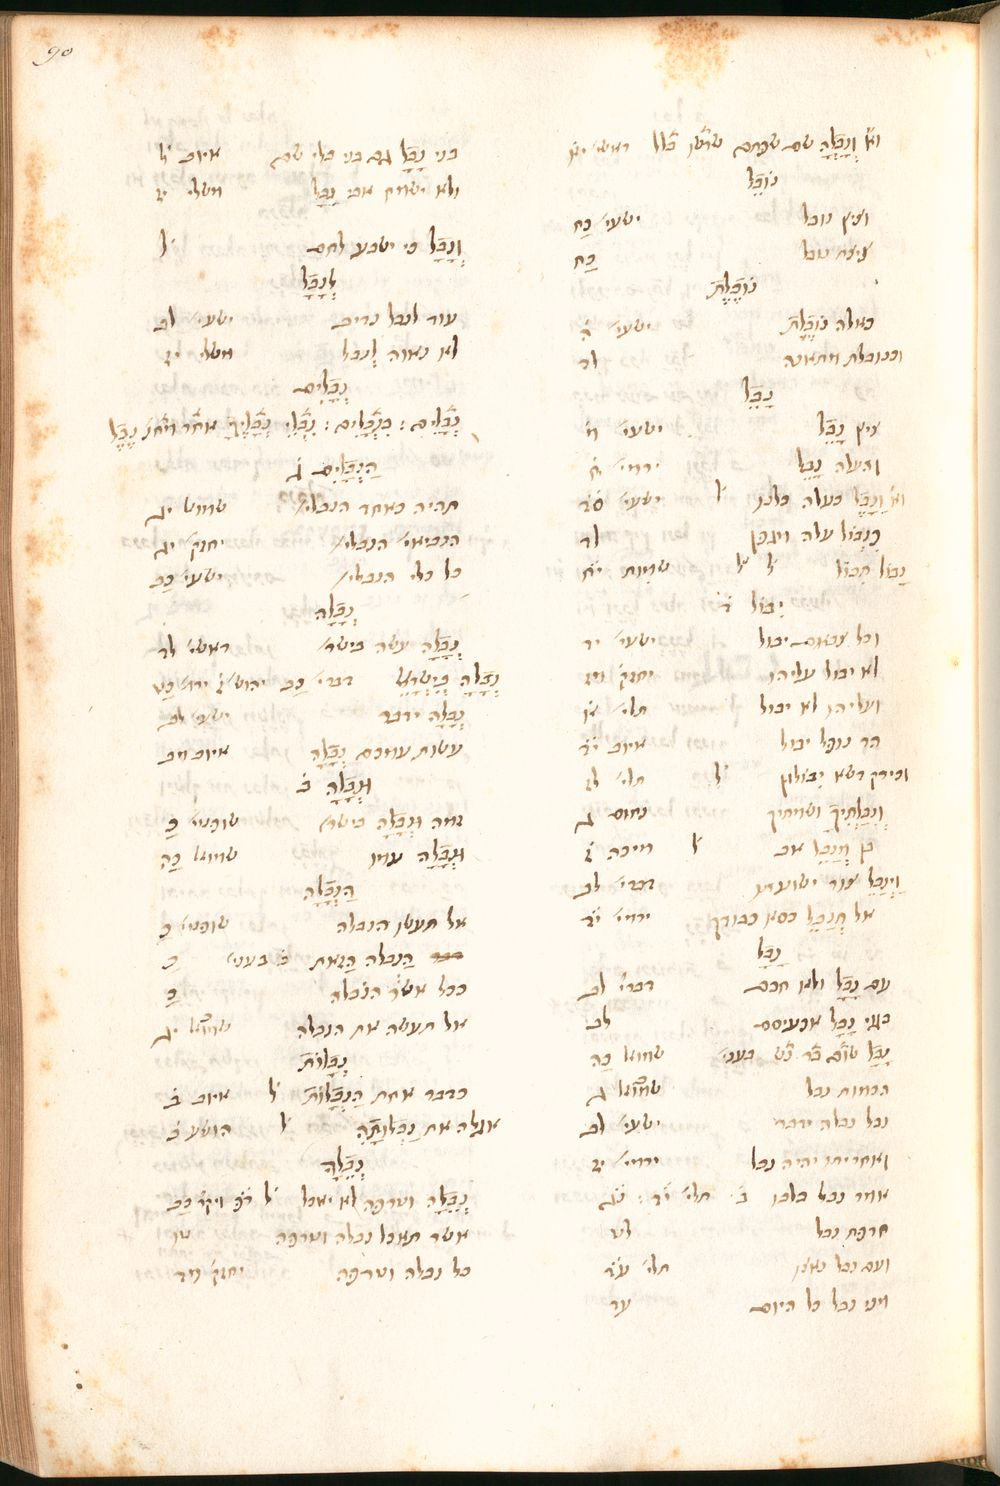 90
וא׳ וְנָבְלָה שם שפתם ראשי׳ יא
נוֹבֵל
וציץ נובל ישעי׳ כח
ציצת נובל כח
נוֹבֶלֶת
כאלה נוֹבֶלֶת ישעי׳ א
וכנובלת מתאנה לד
נָבֵל
ציץ נָבֵל ישעי׳ מ
והעלה נָבֵל ירמי׳ ח
וַנָּבֶל כעלה כלנו ל׳ ישעי׳ סד
כִּנְבוֹל עלה מגפן לד
נָבוֹל תִּבּוֹל ל׳ ל׳ שמות יח
יִבּוֹל
וכל צבאם יבול ישעי׳ לד
לא יבול עליהו יחזק׳ מז
ועליהו לא יבול תלי׳ א
הר נופל יבול איוב יד
וכירק דשא יִבּוֹלוּן ל׳ תלי׳ לז
וְנִבַּלְתִּיךְ ושמתיך נחום ג
בן מְנַבֵּל אב ל׳ מיכה ז
וַיְנַבֵּל צור ישועתו דברי׳ לב
אל תְּנַבֵּל כסא כבודך ירמי׳ יד
נָבָל
עם נָבָל ולא חכם דברי׳ לב
בגוי נָבָל אכעיסם לב
נָבָל בעני׳ שמואל כה
הכמות נבל שמואל ג
נבל נבלה ידבר ישעי׳ לב
ואחריתו יהיה נבל ירמי׳ יז
אמר נבל בלבו ב׳ תלי׳ יד : נג
חרפת נבל לט
ועם נבל נאצו תלי׳ עד
מני נבל כל היום עד
בני נָבָל גם בני בלי שם איוב ל
ולא ישמח אבי נָבָל משלי יז
וְנָבָל כי ישבע לחם ל
לְנָבָל
עוד לנבל נדיב ישעי׳ לב
לא נאוה לְנבל משלי יז
נְבָלִים
הַנְּבָלִים ג
תהיה כאחד הנבלי׳ שמוא׳ יג
הנביאי׳ הנבלי׳ יחזק׳ יג
כל כלי הנבלי׳ ישעי׳ כב
נְבָלָה
נְבָלָה עשה בישר׳ ראשי׳ לד
נְבָלָה בְּיִשְׂרָאֵל דברי׳ כב יהוש׳ ז ירמי׳ כט
נְבָלָה ידבר ישעי׳ לב
עשות עמכם נְבָלָה איוב מב
וּנְבָלָה ב
זמה וּנְבָלָה בישר׳ שופטי׳ כ
וּנְבָלָה עמו שמוא׳ כה
הַנְּבָלָה
אל תעשו הנבלה שופטי׳ כ
הַנבלה הַזאת ב׳ בעני׳ כ
ככל אשר הנבלה כ
אל תעשה את הנבלה שמוא׳ יג
נְבָלוֹת
כדבר אחת הַנְּבָלוֹת ל׳ איוב ב
אגלה את נַבְלוּתָהּ ל׳ הושע ב
נְבֵלָה
נְבֵלָה וטרפה לא יאכל ויקר׳ כב
אשר תאכל נבלה וטרפה יז
כל נבלה וטרפה יחזק׳ מד